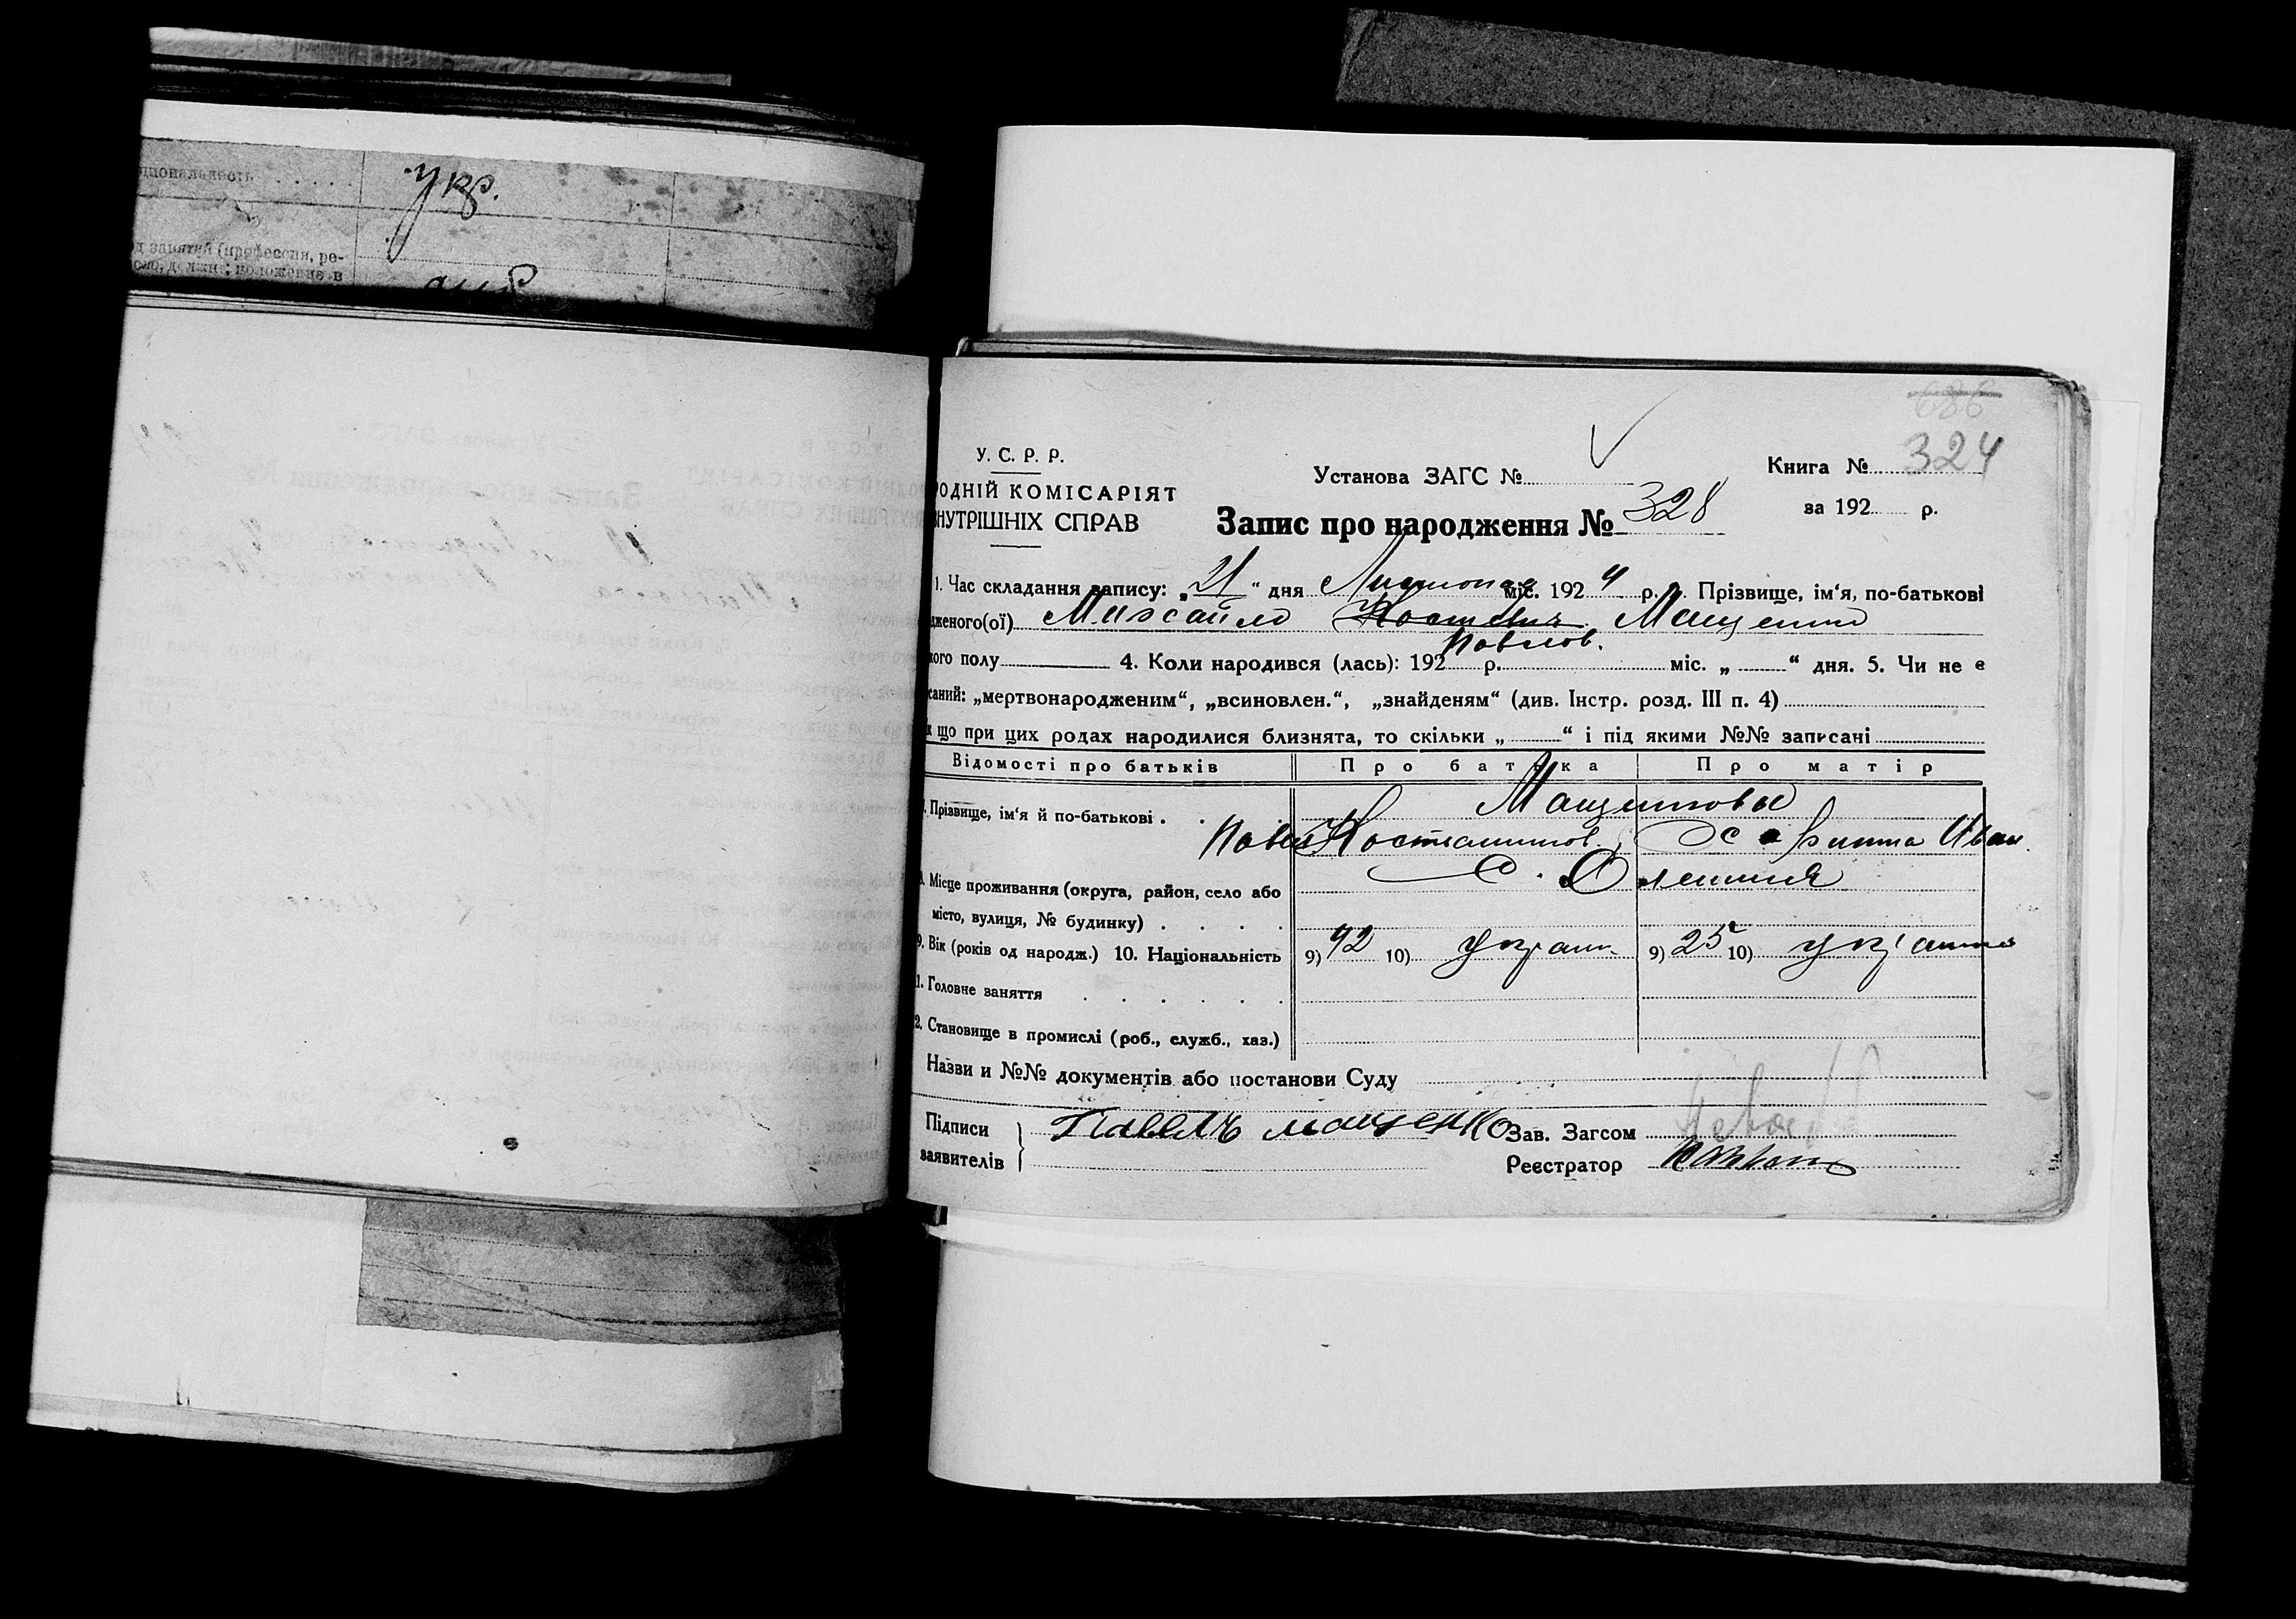 циональность . . . . . укр.
занятий (профессия, ре-
686
324
У. С. Р. Р.
Установа ЗАГС №
Книга №
ОДНІЙ КОМІСАРІЯТ
НУТРІШНІХ СПРАВ
за 192 р.
Запис про народження № 328
1. Час складання запису: „21“ дня Листопада міс. 1924 р. Прізвище, ім‘я, по-батькові
дженого(ої) Михайло Мащенко
Павлов.
кого полу 4. Коли народився (лась): 192 р. міс. „ “ дня. 5. Чи не є
саний: „мертвонародженим“, „всиновлен.“, „знайденям“ (див. Інстр. розд. III п. 4)
що при цих родах народилися близнята, то скільки „ “ і під якими №№ записані
Відомості про батьків Про батька Про матір
Прізвище, ім‘я й по-батькові . .
Павел Костантинов. Иван.
Місце проживання (округа, район, село або
місто, вулиця, № будинку) . . . .
с.
9. Вік (років од народж.) 10. Національність 9) 42 10) україн. 9) 25 10)
1. Головне заняття . . . . . .
2. Становище в промислі (роб., служб., хаз.)
Назви и №№ документів або постанови Суду
Підписи
заявителів
Павелъ мащенко
Зав. Загсом
Реєстратор